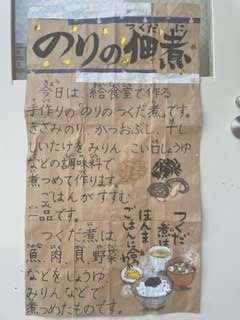 のりの佃煮
つくだに
今日は 給食室で作る
手作りの『のりのつくだ煮』です。
きざみのり、かつおぶし、干し
しいたけをみりん、こい口しょうゆ
などの調味料で
煮つめて作ります。
ごはんがすすむ
一品です。
つくだ煮は
魚、肉、貝、野菜
などをしょうゆ
みりんなどで
煮つめたものです。
つくだ
煮は
ほんま
ごはんに合